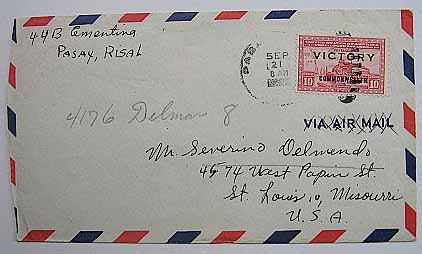 44B Armentina
Pasay, Rizal
SEP
21
8 AM
VICTORY
COMMONWEALTH
10 10
4176 Delmar 8
VIA AIR MAIL
Mr. Severino Delmendo
4574 West Papin St.
St. Louis 10, Missouri
U.S.A.